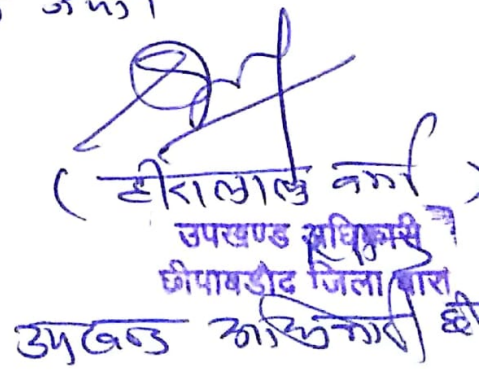 ( हीरालाल वर्मा )
उपखण्ड अधिकारी
छीपाबडौद जिला बारां
उपखण्ड अधिकारी छी